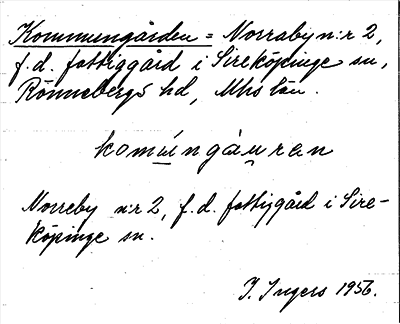 Kommungården = Norraby n:r 2,
f.d. fattiggård i Sireköpinge sn,
Rönnebergs hd, Mhs län.
komúngàuran
Norreby n:r 2, f.d. fattiggård i Sire-
köpinge sn.
I. Ingers 1956.